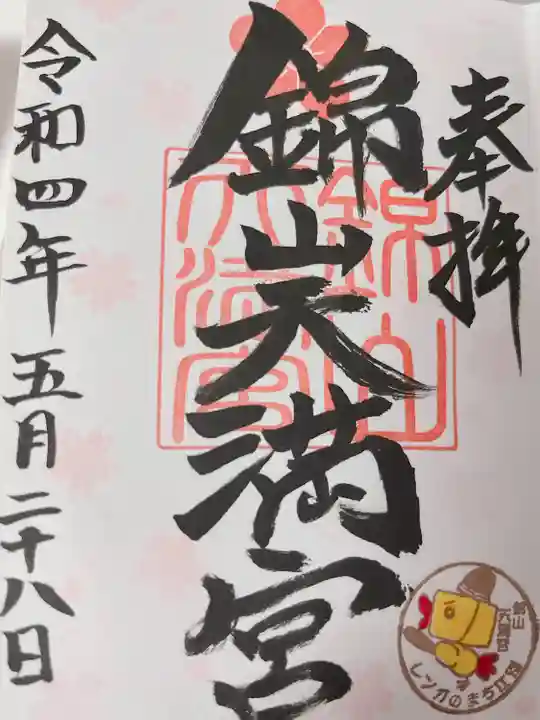 奉拝
錦山天満宮
錦山天満宮
令和四年五月二十八日
錦山
天満宮
レンガのまち江別